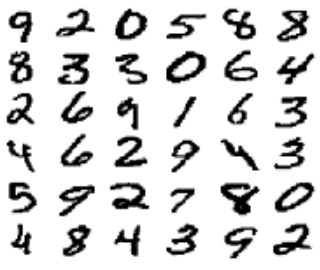 9 2 0 5 8 8
8 3 3 0 6 4
2 6 9 1 6 3
4 6 2 9 4 3
5 9 2 7 8 0
4 8 4 3 9 2